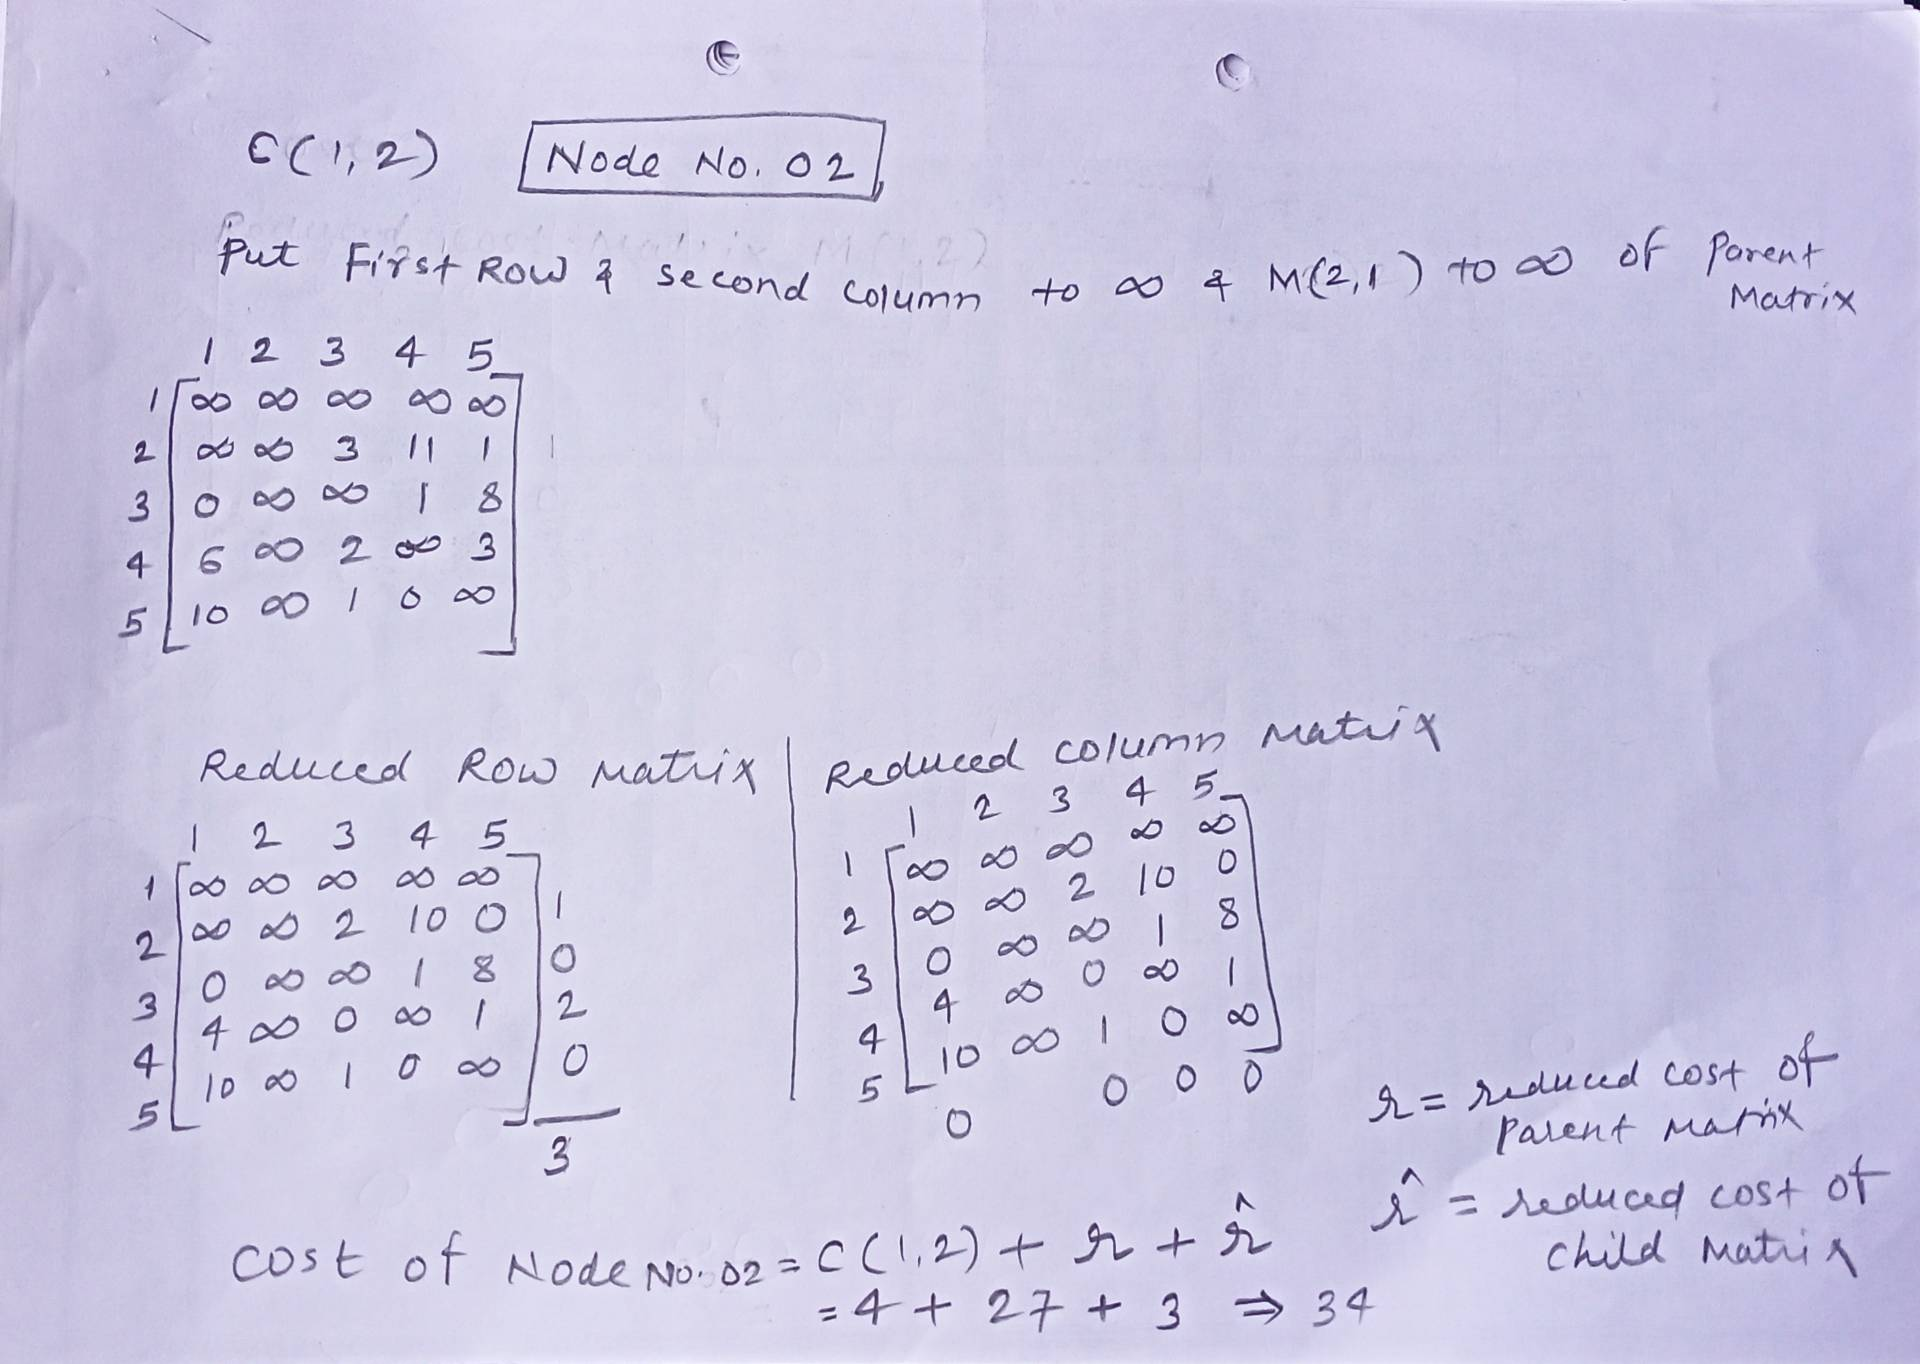 C(1,2) Node No. 02
Put First Row & second column to ∞ & M(2,1) to ∞ of Parent Matrix
1 2 3 4 5
1 ∞ ∞ ∞ ∞ ∞
2 ∞ ∞ 3 11 1
3 0 ∞ ∞ 1 8
4 6 ∞ 2 ∞ 3
5 10 ∞ 1 0 ∞
Reduced Row Matrix
1 2 3 4 5
1 ∞ ∞ ∞ ∞ ∞
2 ∞ ∞ 2 10 0 1
3 0 ∞ ∞ 1 8 0
4 4 ∞ 0 ∞ 1 2
5 10 ∞ 1 0 ∞ 0
3
Reduced column Matrix
1 2 3 4 5
1 ∞ ∞ ∞ ∞ ∞
2 ∞ ∞ 2 10 0
3 0 ∞ ∞ 1 8
4 4 ∞ 0 ∞ 1
5 10 ∞ 1 0 ∞
0 0 0 0
r = reduced cost of
Parent Matrix
r̂ = reduced cost of
child Matrix
cost of Node No. 02 = C(1,2) + r + r̂
= 4 + 27 + 3 ⇒ 34